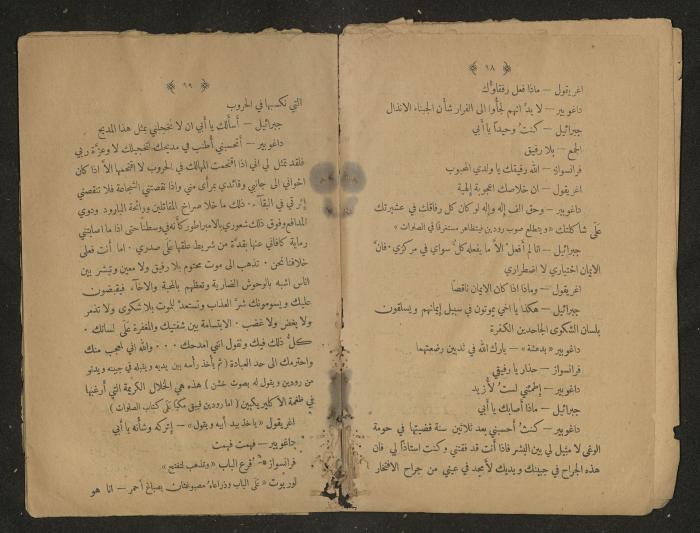 ﴿ ٦٨ ﴾
اغريقول — ماذا فعل رفقاؤك
داغوبير — لا بدّ انهم لجأوا الى الفرار شأن الجبناء الانذال
جبرائيل — كنت وحيداً يا أبي
الجمع — بلا رفيق
فرانسواز — الله رفيقك يا ولدي المحبوب
اغريقول — ان خلاصك اعجوبة إلهية
داغوبير — وحق الف إله وإله لو كان كل رفاقك في عشيرتك
على شاكلتك « ويتطلع صوب رودين فيتظاهر مستغرقاً في الصلوات »
جبرائيل — انا لم أفعل الاّ ما يفعله كلّ سواي في مركزي . فانّ
الايمان اختياري لا اضطراري
اغريقول — وماذا اذا كان الايمان ناقصاً
جبرائيل — هكذا يا اخي يموتون في سبيل إيمانهم ويسلقون
بلسان الشكوى الجاحدين الكفرة
داغوبير « بدهشة » — بارك الله في ثديين رضعتهما
فرانسواز — حذار يا رفيقي
داغوبير — إطمئني لستُ لأزيد
جبرائيل — ماذا أصابك يا أبي
داغوبير — كنتُ أحسبني بعد ثلاثين سنة قضيتها في حومة
الوغى لا مثيل لي بين البشر فاذا أنت قد فقتني وكنت استاذاً لي فان
هذه الجراح في جبينك ويديك لأمجد في عيني من جراح الافتخار
﴿ ٦٩ ﴾
التي نكسبها في الحروب
جبرائيل — أسألك يا أبي ان لا تخجلني بمثل هذا المديح
داغوبير — أتحسبني أطنب في مديحك لتخجيلك لا وعزّة ربي
فلقد تمثل لي اني اذا اقتحمت المهالك في الحروب لا اقتحمها الاّ اذا كان
اخواني الى جانبي وقائدي بمرأى مني واذا نقصتني الشجاعة فلا تنقصني
إثرتي في البقاء . ذلك ما خلا صراخ المقاتلين ورائحة البارود ودوي
المدافع وفوق ذلك شعوري بالامبراطور كأنه في وسطنا حتى اذا ما اصابتني
رماية كافاني عنها بقدّة من شريط علقها على صدري . اما أنت فعلى
خلافنا نحن . تذهب الى موت محتوم بلا رفيق ولا معين وتبشر بين
اناس اشبه بالوحوش الضارية وتعظهم بالمحبة والاخآء فيقبضون
عليك ويسومونك شرّ العذاب وتستعدّ للموت بلا شكوى ولا تذمر
ولا بغض ولا غضب . الابتسامة بين شفتيك والمغفرة على لسانك .
كلّ ذلك فيك وتقول انني امدحك . . . والله اني لمعجب منك
واحترمك الى حد العبادة ( ثم يأخذ رأسه بين يديه ويقبله في جبينه ويدنو
من رودين ويقول له بصوت خشن ) هذه هي الخلال الكريمة التي أرغبتها
في طغمة الاكليريكيين ( اما رودين فيبقى مكباً على كتاب الصلوات )
اغريقول « ياخذ بيد أبيه ويقول » — إتركه وشأنه يا أبي
داغوبير — فهمت فهمت
فرانسواز — قُرع الباب « وتذهب لتفتح »
لوريوت « على الباب وذراعاه مصبوغتان بصباغ أحمر — انا هو